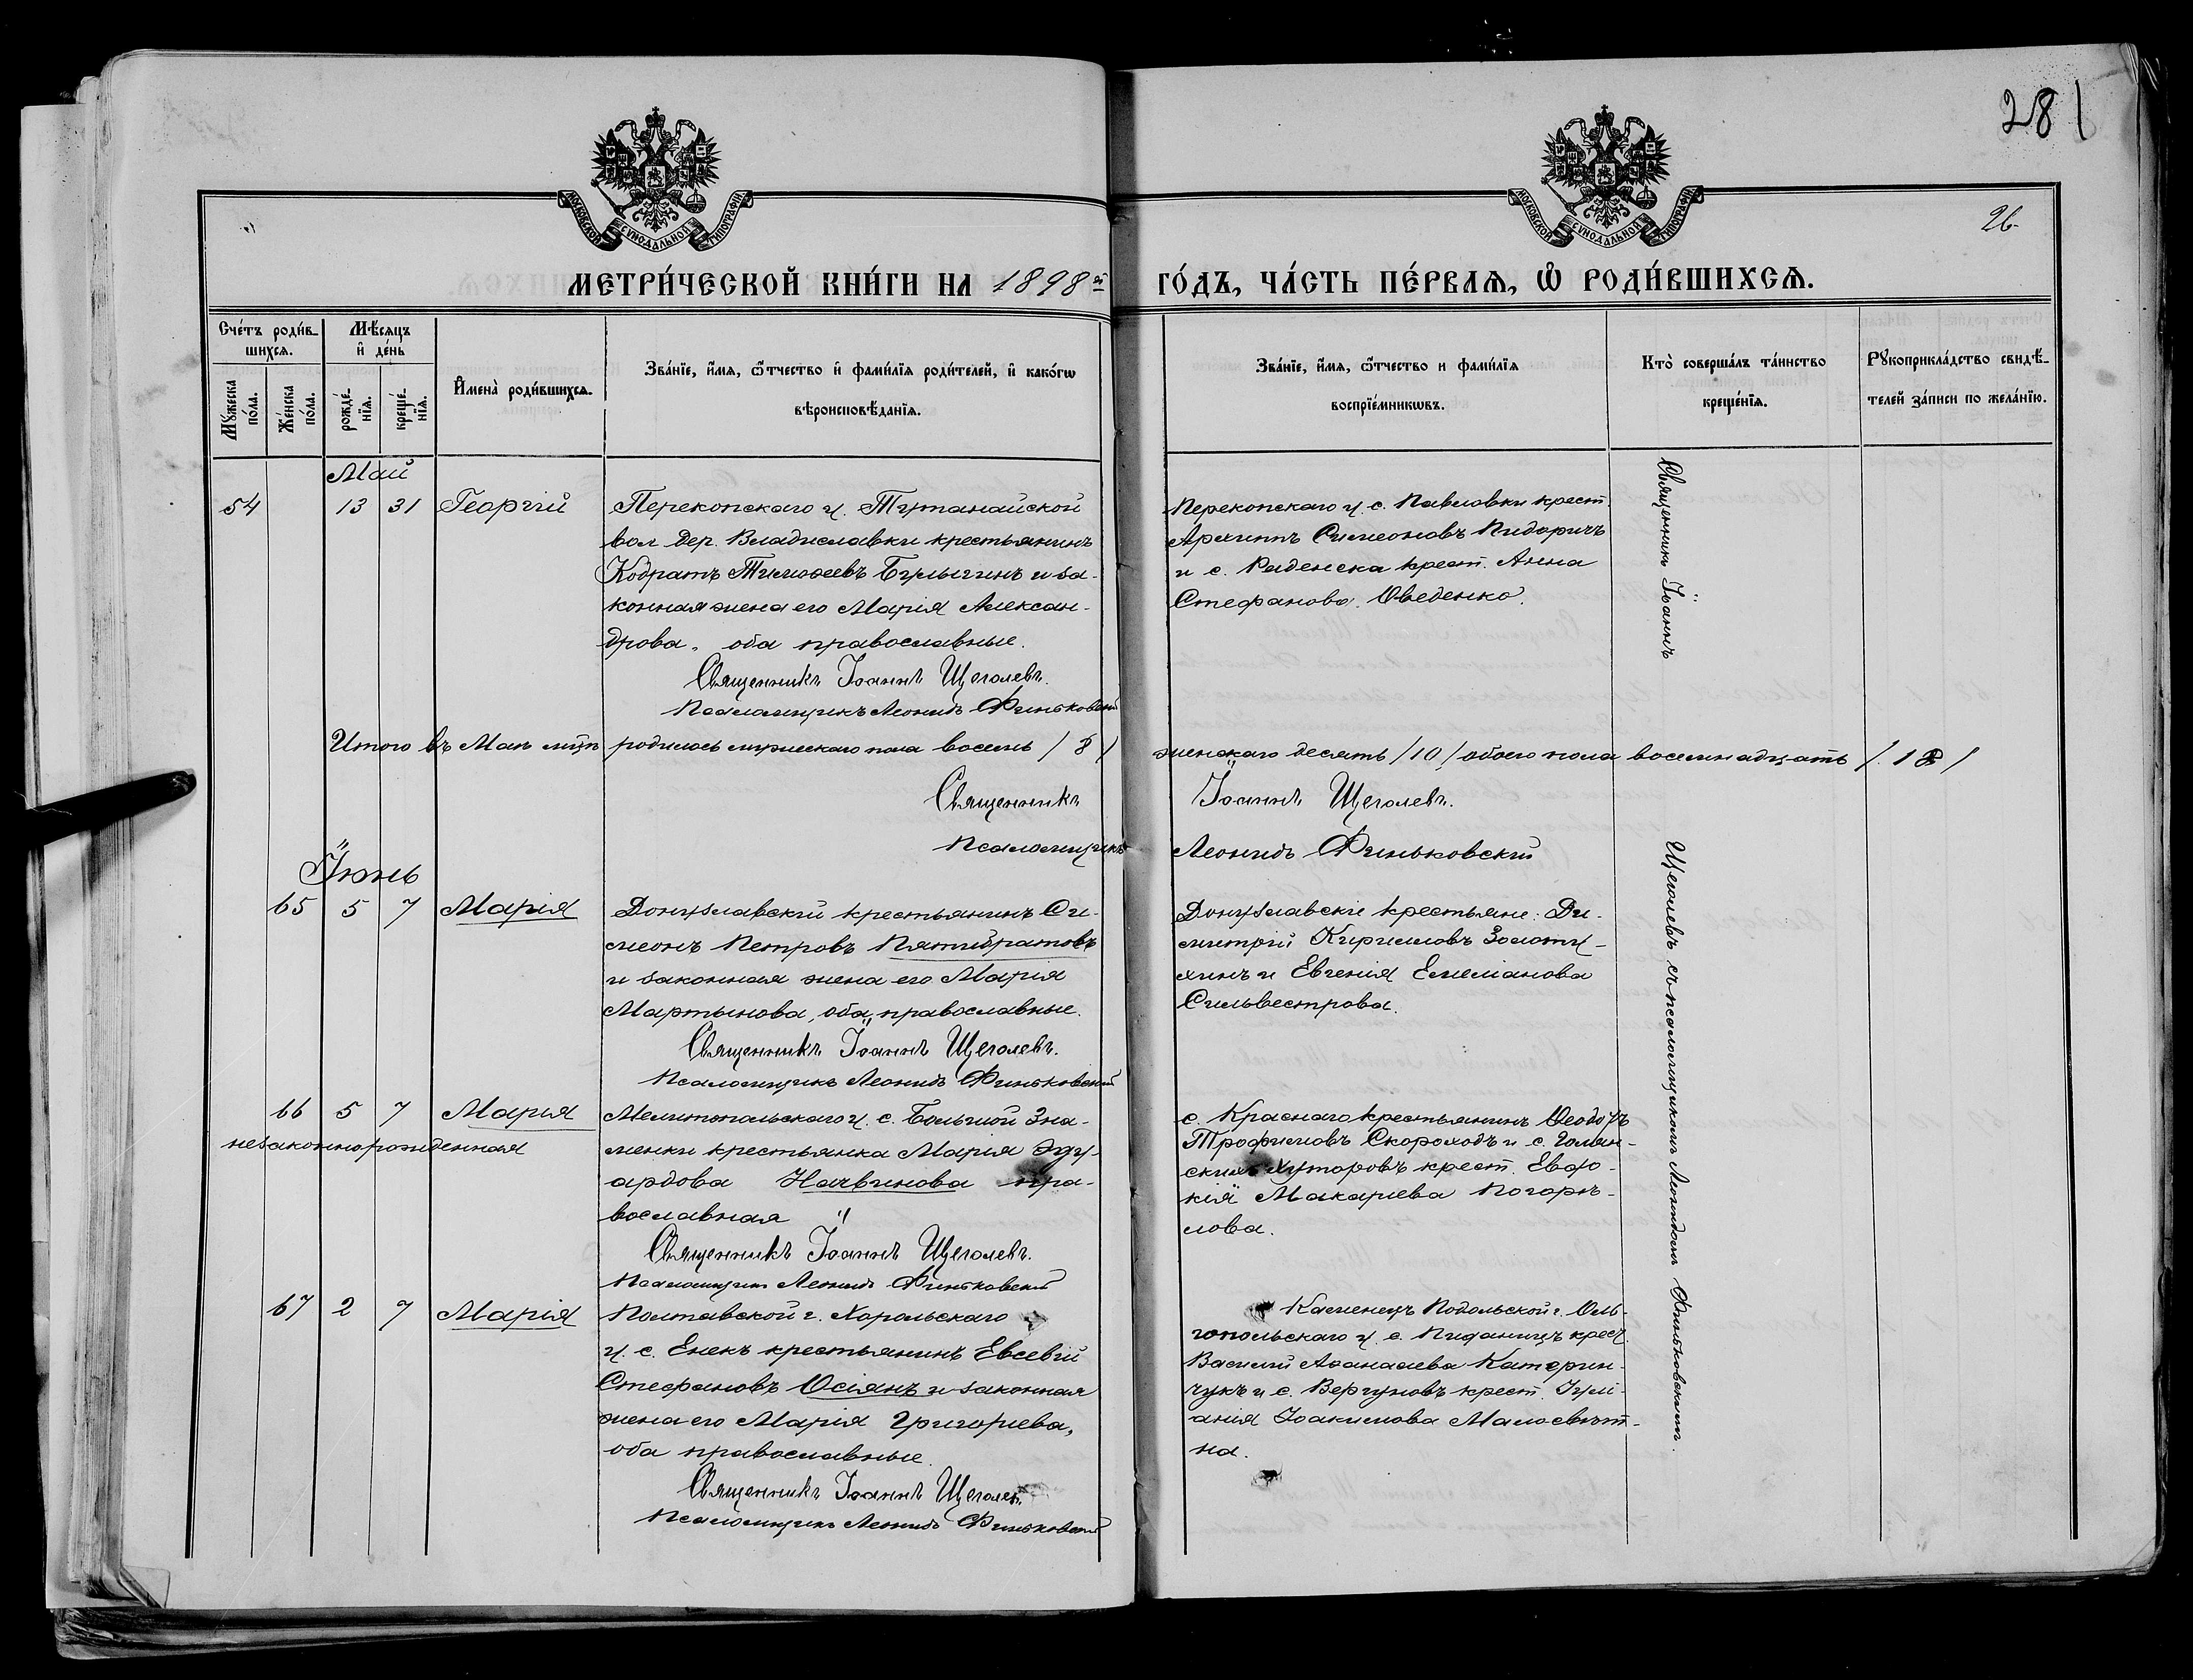 281
26
МОСКОВСКОЙ СѴНОДАЛЬНОЙ ТИПОГРАФІИ
МОСКОВСКОЙ СѴНОДАЛЬНОЙ ТИПОГРАФІИ
МЕТРИ́ЧЕСКОЙ КНИ́ГИ НА 1898й ГО́ДЪ, ЧА́СТЬ ПЕ́РВАѦ, Ѽ РОДИ́ВШИХСѦ.
Сче́тъ роди́в-
шихсѧ.
Мѣ́сѧцъ
и҆ де́нь
Мꙋ́жеска
по́ла.
Же́нска
по́ла.
рожде́-
нїѧ.
креще́-
нїѧ.
И҆мена̀ роди́вшихсѧ.
Зва́нїе, и҆́мѧ, ѻ҆́тчество и҆ фами́лїѧ роди́телей, и҆ како́гѡ
вѣроисповѣ́данїѧ.
Зва́нїе, и҆́мѧ, ѻ҆́тчество и фами́лїѧ
воспрїе́мникѡвъ.
Кто̀ соверша́лъ та́инство
креще́нїѧ.
Рꙋкоприкла́дство свидѣ́-
телей за́писи по жела́нїю.
Май
54 13 31 Георгій
Перекопскаго у. Тутанайской
вол. дер. Владиславки крестьянинъ
Кодратъ Тимоѳеевъ Булыгинъ и за-
конная жена его Марія Алексан-
дрова, оба православные.
Священникъ Іоаннъ Щеголевъ.
Псаломщикъ Леонидъ Финьковскій
Перекопскаго у. с. Павловки крест.
Архиппъ Симеоновъ Пидоричъ
и с. Раденска крест. Анна
Стефанова Оведенко.
Священникъ Іоаннъ
Щеголевъ съ псаломщикомъ Леонидомъ Финьковскимъ.
Итого въ Маѣ мцѣ родилось мужескаго пола восемь / 8 / женскаго десять / 10 / обоего пола восемнадцать / 18 /
Священникъ Іоаннъ Щеголевъ.
Псаломщикъ Леонидъ Финьковскій
Іюнь
65 5 7 Марія
Донузлавскій крестьянинъ Си-
меонъ Петровъ Пятибратовъ
и законная жена его Марія
Мартынова, оба православные.
Священникъ Іоаннъ Щеголевъ.
Псаломщикъ Леонидъ Финьковскій
Донузлавскіе крестьяне: Ди-
митрій Кирилловъ Золоту-
хинъ и Евгенія Емеліанова
Сильвестрова.
66 5 7 Марія
незаконнорожденная
Мелитопольскаго у. с. Большой Зна-
менки крестьянка Марія Эду-
ардова Начвинова пра-
вославная
Священникъ Іоаннъ Щеголевъ.
Псаломщикъ Леонидъ Финьковскій
с. Краснаго крестьянинъ Ѳеодоръ
Трофимовъ Скороходъ и с.
хуторовъ крест. Евдо-
кія Макаріева Погорѣ-
лова.
67 2 7 Марія
Полтавской г. Хорольскаго
у. с. Енекъ крестьянинъ Евсевій
Стефановъ Осіянъ и законная
жена его Марія Григорьева,
оба православные.
Священникъ Іоаннъ Щеголевъ
Псаломщикъ Леонидъ Финьковскій
Каменецъ Подольской г. Оль-
гопольскаго у. с. крест.
Василій Аѳанасіева Катерин-
чукъ и с. Вергуновъ крест. Іулі-
анія Іоакимова Малосвѣт-
на.